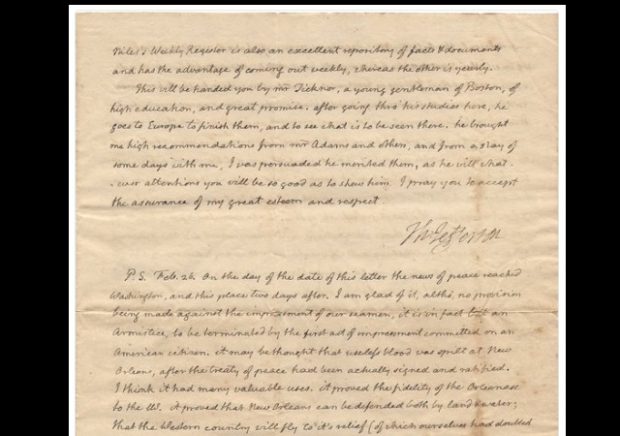 Niles's Weekly Register is also an excellent repository of facts & documents
and has the advantage of coming out weekly, whereas the other is yearly.
This will be handed you by mr Ticknor, a young gentleman of Boston, of
high education, and great promise. after going thro' his studies here, he
goes to Europe to finish them, and to see what is to be seen there. he brought
me high recommendations from mr Adams and others, and from a stay of
some days with me, I was persuaded he merited them, as he will what-
ever attentions you will be so good as to shew him. I pray you to accept
the assurance of my great esteem and respect
Th: Jefferson
P.S. Feb. 26. On the day of the date of this letter the news of peace reached
Washington, and this place two days after. I am glad of it, altho, no provision
being made against the impressment of our seamen, it is in fact but an
Armistice, to be terminated by the first act of impressment committed on an
American citizen. it may be thought that useless blood was spilt at New
Orleans, after the treaty of peace had been actually signed and ratified.
I think it had many valuable uses. it proved the fidelity of the Orleanese
to the US. it proved that New Orleans can be defended both by land & water;
that the Western country will fly to it's relief (of which ourselves had doubted